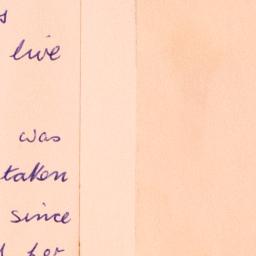 s
live
was
taken
since
her